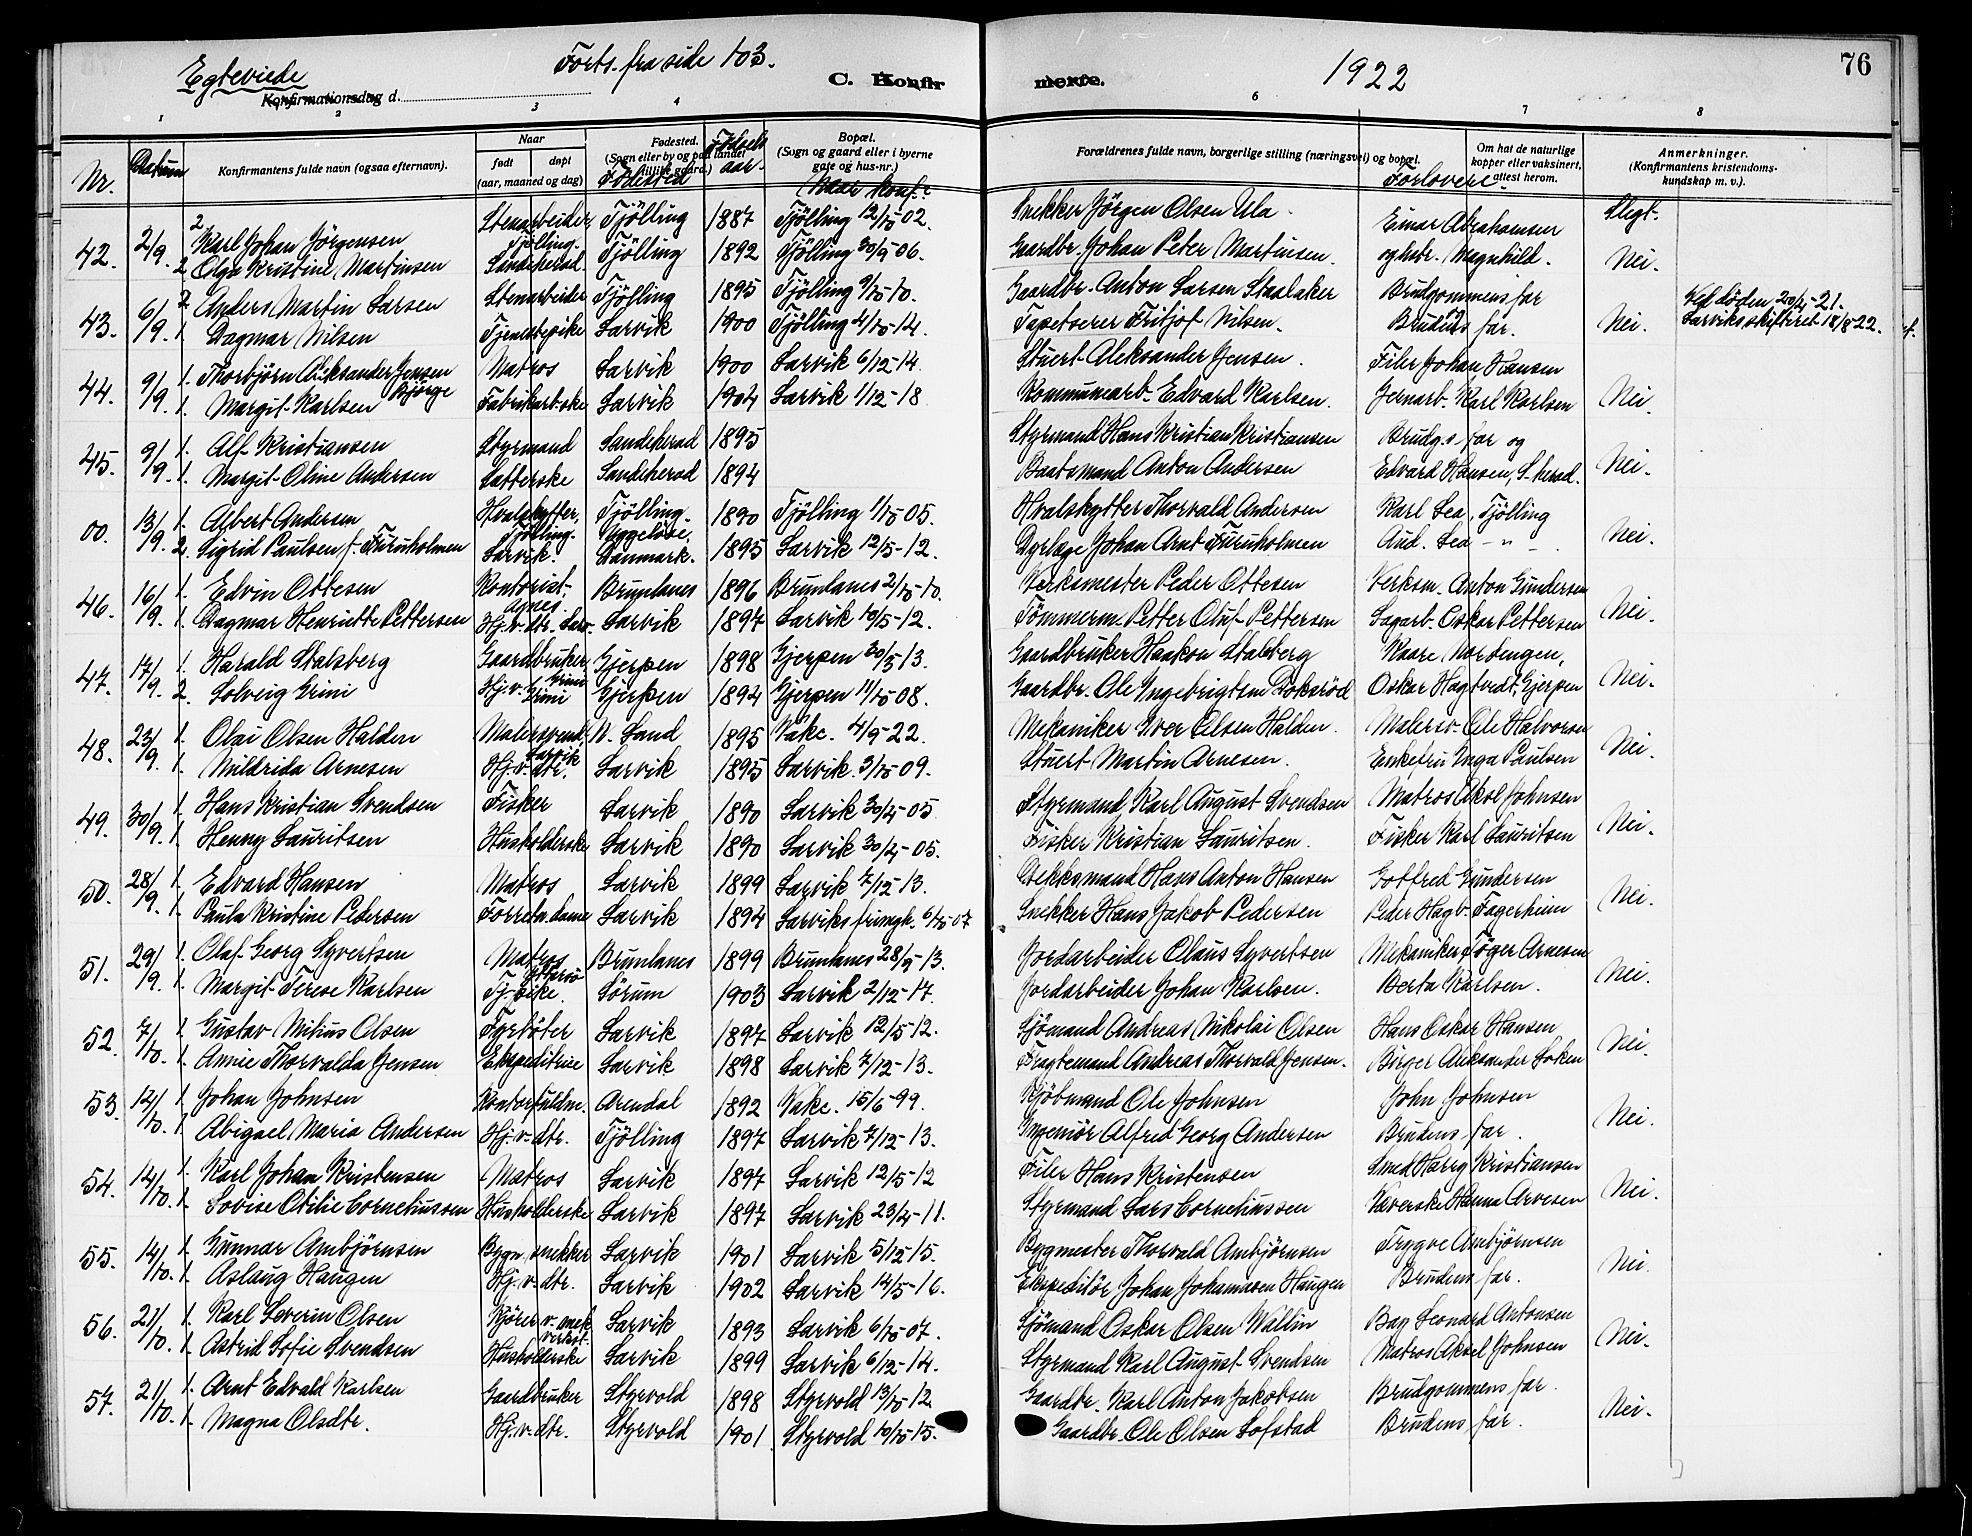 Egteviede
Forts. fra side 103.
1922
76
Konfirmationsdag d.
C. Konfirmerte.
1 2 3 4 6 7 8
Nr. Datum Konfirmantens fulde navn (ogsaa efternavn). Naar født døpt (aar, maaned og dag) Fødested. (Sogn eller by og paa landet tillike gaard.) Fødested Fødsels aar. Bopæl. (Sogn og gaard eller i byerne gate og hus-nr.) Naar konf.? Forældrenes fulde navn, borgerlige stilling (næringsvei) og bopæl. Forlovere. Om hat de naturlige kopper eller vaksinert, attest herom. Anmerkninger. (Konfirmantens kristendomskundskap m. v.).
42. 2/9. 2 Karl Johan Jörgensen Stenarbeider, Tjölling. Tjölling 1887 Tjölling 12/10-02. Snekker Jörgen Olsen Ula. Einar Abrahamsen Slegt.
2 Olga Kristine Martinsen Sandeherad. Tjölling 1892 Tjölling 30/9 06. Gaardbr. Johan Peter Martinsen. og hstr. Magnhild. Nei.
43. 6/9. 2 Anders Martin Larsen Stenarbeider Tjölling 1895 Tjölling 9/10-10. Gaardbr. Anton Larsen Staalaker Brudgommens far Ved döden 20/4-21.
1. Dagmar Nilsen Tjenestepike Larvik 1900 Tjölling 4/10-14. Tapetserer Fritjof Nilsen. Brudens far. Nei. Larviks skifteret 18/8-22.
44. 9/9. 1. Thorbjörn Aleksander Jensen Björge Matros Larvik 1900 Larvik 6/12-14. Stuert Aleksander Jensen. Filer Johan Hansen
1. Margit Karlsen Fabrikarb.ske Larvik 1904 Larvik 1/12-18 Kommunearb. Edvard Karlsen. Jernarb. Karl Karlsen Nei.
45. 9/9. 1. Alf Kristiansen Styrmand Sandeherad 1895 Styrmand Hans Kristian Kristiansen Brudg.s far og
1. Margit Oline Andersen Satterske Sandeherad 1894 Baatsmand Anton Andersen Edvard Hansen, S.herad. Nei.
00. 13/9. 1. Albert Andersen Hvalskytter, Tjölling. Tjölling. 1890 Tjölling 1/10 05. Hvalskytter Thorvald Andersen Karl Lea, Tjölling
2. Sigrid Paulsen f. Furuholmen Larvik. Uggelöse, Danmark. 1895 Larvik 12/5-12. Dyrlæge Johan Arnt Furuholmen And. Lea - " - Nei.
46. 16/9. 1. Edvin Ottesen Kontorist, Agnes. Brunlanes 1896 Brunlanes 2/10-10. Verksmester Peder Ottesen Verksm. Anton Gundersen
1. Dagmar Henriette Pettersen Hj.v. dtr. Larv. Larvik 1897 Larvik 10/5-12. Tömmerm. Petter Oluf Pettersen Sagarb. Oskar Pettersen Nei.
47. 17/9. 1. Harald Stalsberg Gaardbruker, Grini Gjerpen 1898 Gjerpen 30/3 13. Gaardbruker Haakon Stalsberg Kaare Nordengen,
2. Solveig Grini Hj.v. Grini Gjerpen 1894 Gjerpen 11/10 08. Gaardbr. Ole Ingebrigtsen Doksröd Oskar Hagtvedt, Gjerpen Nei.
48. 23/9. 1. Olai Olsen Halden Malersvend, Larvik N. Land 1895 Vakc. 4/9-22. Mekaniker Iver Olsen Halden. Malersv. Ole Halvorsen
1. Mildrida Arnesen Hj.v. dtr. Larvik 1895 Larvik. 3/10-09. Stuert Martin Arnesen. Enkefru Inga Paulsen Nei.
49. 30/9. 1. Hans Kristian Svendsen Fisker Larvik 1890 Larvik 30/4-05 Styrmand Karl August Svendsen Matros Aksel Johnsen
1. Henny Lauritsen Husholderske Larvik 1890 Larvik 30/4-05. Fisker Kristian Lauritsen. Fisker Karl Lauritsen Nei.
50. 28/9. 1. Edvard Hansen Matros Larvik 1899 Larvik 7/12-13. Dekksmand Hans Anton Hansen Gotfred Gundersen
1. Paula Kristine Pedersen Forretn.dame Larvik 1894 Larviks frimgh. 6/10-07 Snekker Hans Jakob Pedersen Peder Hagb. Fagerheim Nei.
51. 29/9. 1. Olaf Georg Syvertsen Matros Brunlanes 1899 Brunlanes 28/9-13. Jordarbeider Olaus Syvertsen Mekaniker Töger Arnesen
1. Margit Terese Karlsen Tj.pike. Sörum 1903 Larvik 2/12-17. Jordarbeider Johan Karlsen. Berta Karlsen. Nei.
52. 7/10. 1. Gustav Mikius Olsen Fyrböter Larvik 1897 Larvik 12/5-12. Sjömand Andreas Nikolai Olsen Hans Oskar Hansen
1. Annie Thorvalda Jensen Ekspeditrice Larvik 1898 Larvik 7/12-13. Fragtemand Andreas Thorvald Jensen. Birger Aleksander Loken Nei.
53. 12/10. 1. Johan Johnsen Kontorfuldm. Arendal 1892 Vakc. 15/6-99. Kjöbmand Ole Johnsen John Johnsen
1. Abigael Maria Andersen Hj.v. dtr. Tjölling 1897 Larvik 7/12-13. Ingeniör Alfred Georg Andersen Brudens far. Nei.
54. 14/10. 1. Karl Johan Kristensen Matros Larvik 1897 Larvik 12/5-12 Filer Hans Kristensen Smed Harry Kristiansen
1. Lovise Otilie Corneliussen Husholderske Larvik 1897 Larvik 23/4-11. Styrmand Lars Corneliussen Væverske Hanna Arvesen Nei.
55. 14/10. 1. Gunnar Ambjörnsen Bygn.snekker Larvik 1901 Larvik 5/12-15. Bygmester Thorvald Ambjörnsen Trygve Ambjörnsen
1. Aslaug Haugen Hj.v. dtr. Larvik 1902 Larvik 14/5-16. Ekspeditör Johan Johannesen Haugen Brudens far. Nei.
56. 21/10. 1. Karl Severin Olsen Kjörer v. mek. verkst. Larvik 1893 Larvik 6/10-07. Sjömand Oskar Olsen Wallin Bag Leonard Antonsen
1. Astrid Sofie Svendsen Husholderske Larvik 1899 Larvik 6/12-14. Styrmand Karl August Svendsen Matros Aksel Johnsen Nei.
57. 21/10. 1. Arnt Edvald Karlsen Gaardbruker Styrvold 1898 Styrvold 13/10-12. Gaardbr. Karl Anton Jakobsen Brudgommens far.
1. Magna Olsdtr. Hj.v. dtr. Styrvold 1901 Styrvold 10/10-15. Gaardbr. Ole Olsen Lofstad Brudens far. Nei.